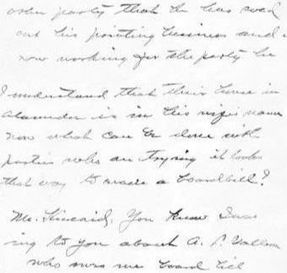 other party that he has sold
out his printing business and
now working for the party he
I understand that their home in
Alameda is in his wife's name
now what can be done with
parties who are trying it looks
that way to evade a board bill?
Mr. Kincaid, You know I was
ing to you about A. P.
who owes me board bill